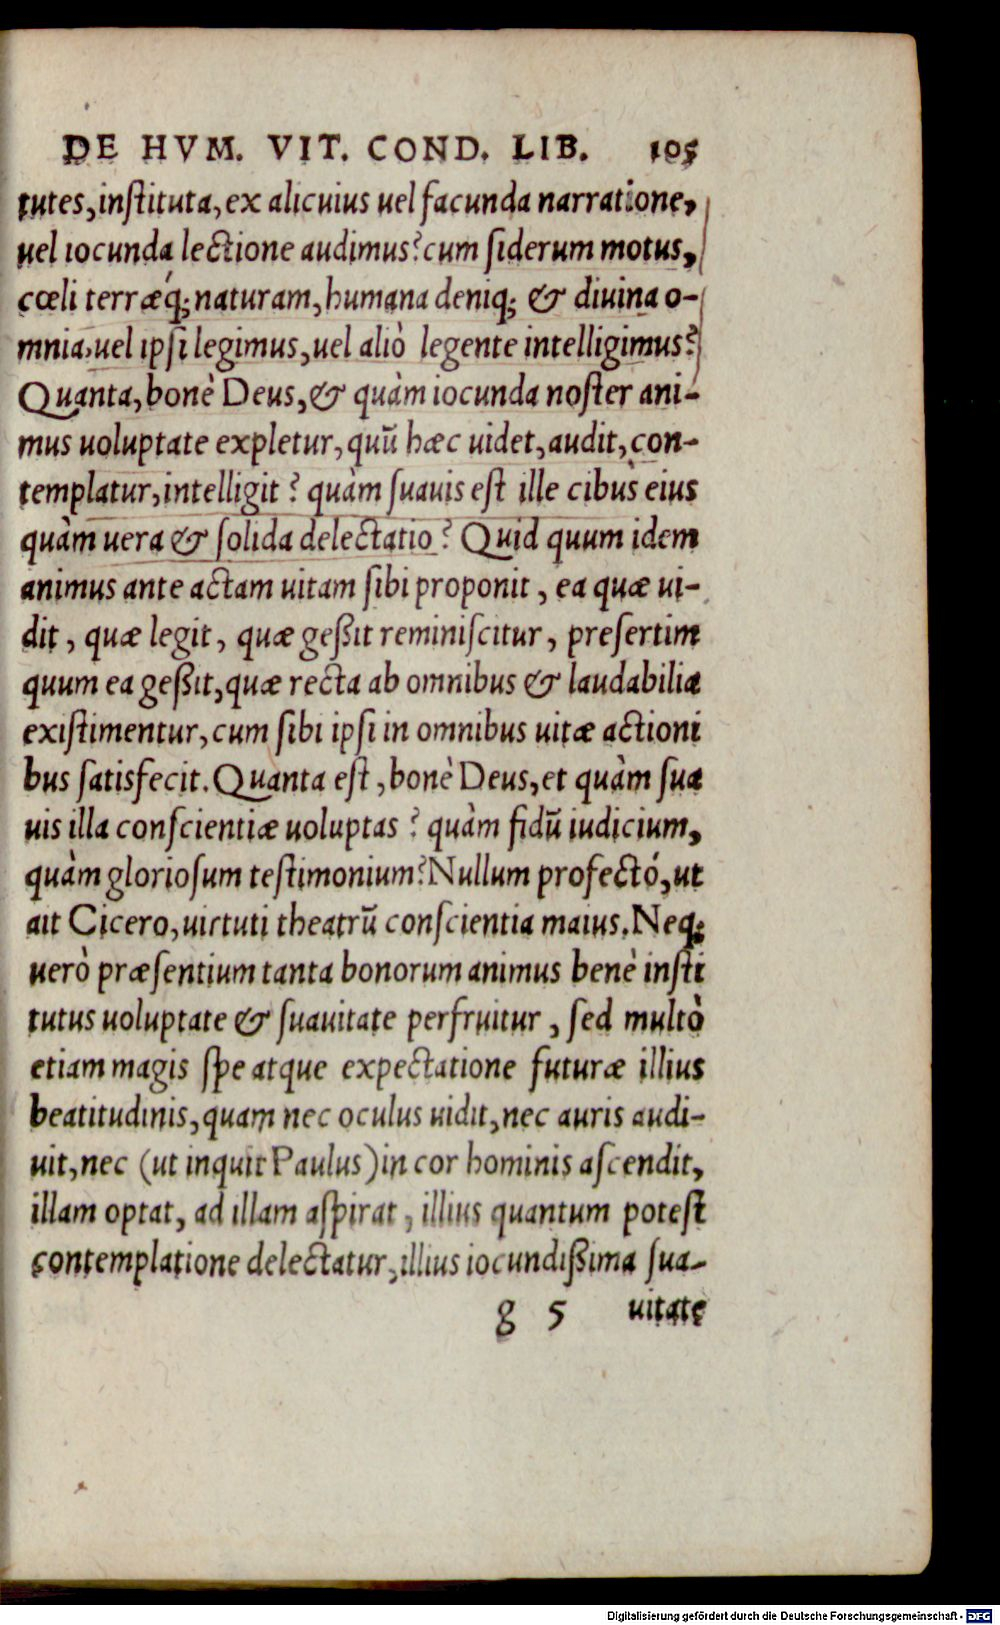 DE HVM. VIT. COND. LIB. 105
tutes, inſtituta, ex alicuius uel facunda narratione,
uel iocunda lectione audimus? cum ſiderum motus,
cœli terræq́; naturam, humana deniq; & diuina o-
mnia, uel ipſi legimus, uel aliò legente intelligimus?
Quanta, bonè Deus, & quàm iocunda noſter ani-
mus uoluptate expletur, quũ hæc uidet, audit, con-
templatur, intelligit? quàm ſuauis eſt ille cibus eius
quàm uera & ſolida delectatio? Quid quum idem
animus ante actam uitam ſibi proponit, ea quæ ui-
dit, quæ legit, quæ geßit reminiſcitur, preſertim
quum ea geßit, quæ recta ab omnibus & laudabilia
exiſtimentur, cum ſibi ipſi in omnibus uitæ actioni
bus ſatisfecit. Quanta eſt, bonè Deus, et quàm ſua
uis illa conſcientiæ uoluptas? quàm fidũ iudicium,
quàm glorioſum teſtimonium? Nullum profectó, ut
ait Cicero, uirtuti theatrũ conſcientia maius. Neq;
uerò præſentium tanta bonorum animus benè inſti
tutus uoluptate & ſuauitate perfruitur, ſed multò
etiam magis ſpe atque expectatione futuræ illius
beatitudinis, quam nec oculus uidit, nec auris audi-
uit, nec (ut inquit Paulus) in cor hominis aſcendit,
illam optat, ad illam aſpirat, illius quantum poteſt
contemplatione delectatur, illius iocundißima ſua-
g 5 uitate
Digitalisierung gefördert durch die Deutsche Forschungsgemeinschaft - DFG